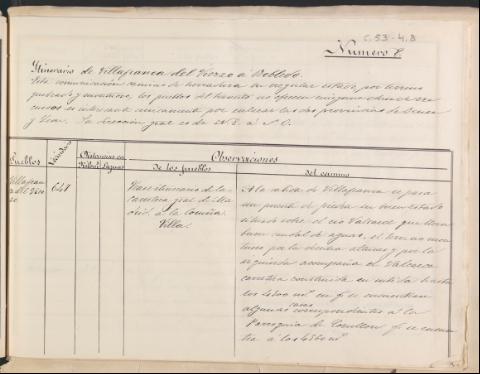 C. 53-4, B
Numero 8.
Itinerario de Villafranca del Vierzo a Robledo.
Esta comunicacion camino de herradura en regular estado, por terreno
quebrado y montuoso, los pueblos del transito no ofrecen ninguna clase de re
cursos es interesante unicamente por enlazar las dos provincias de
y Leon. La direccion gral es de N.E. á S.O.
Pueblos
Vecindario
Distancias en
Observaciones
de los pueblos
del camino
Villafran
ca del Vier
zo
641
Vease itinerario de la
carretera gral de Ma
drid á la Coruña.
Villa.
A la salida de Villafranca se pasa
un puente de piedra en buen estado
situado sobre el rio Valcarce que lleva
buen caudal de aguas, el terreno
por la derecha alturas y por la
izquierda acompaña el Valcarce
carretera construida en esta la hasta
los 4300 mˢ en q. se encuentran
algunas casas correspondientes a la
Parroquia de Corullon q. se encuen
tra á los 4560 mˢ